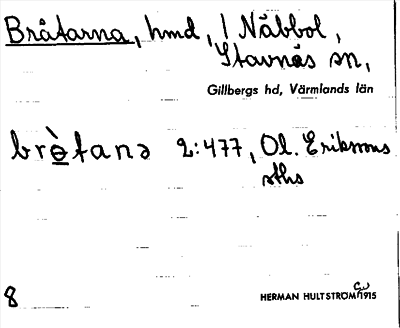 Bråtarna, hmd, i Näbbol,
Stavnäs sn,
Gillbergs hd, Värmlands län
brè̱tanə 2:477, Ol. Erikssons
sths
8 HERMAN HULTSTRÖM 1915